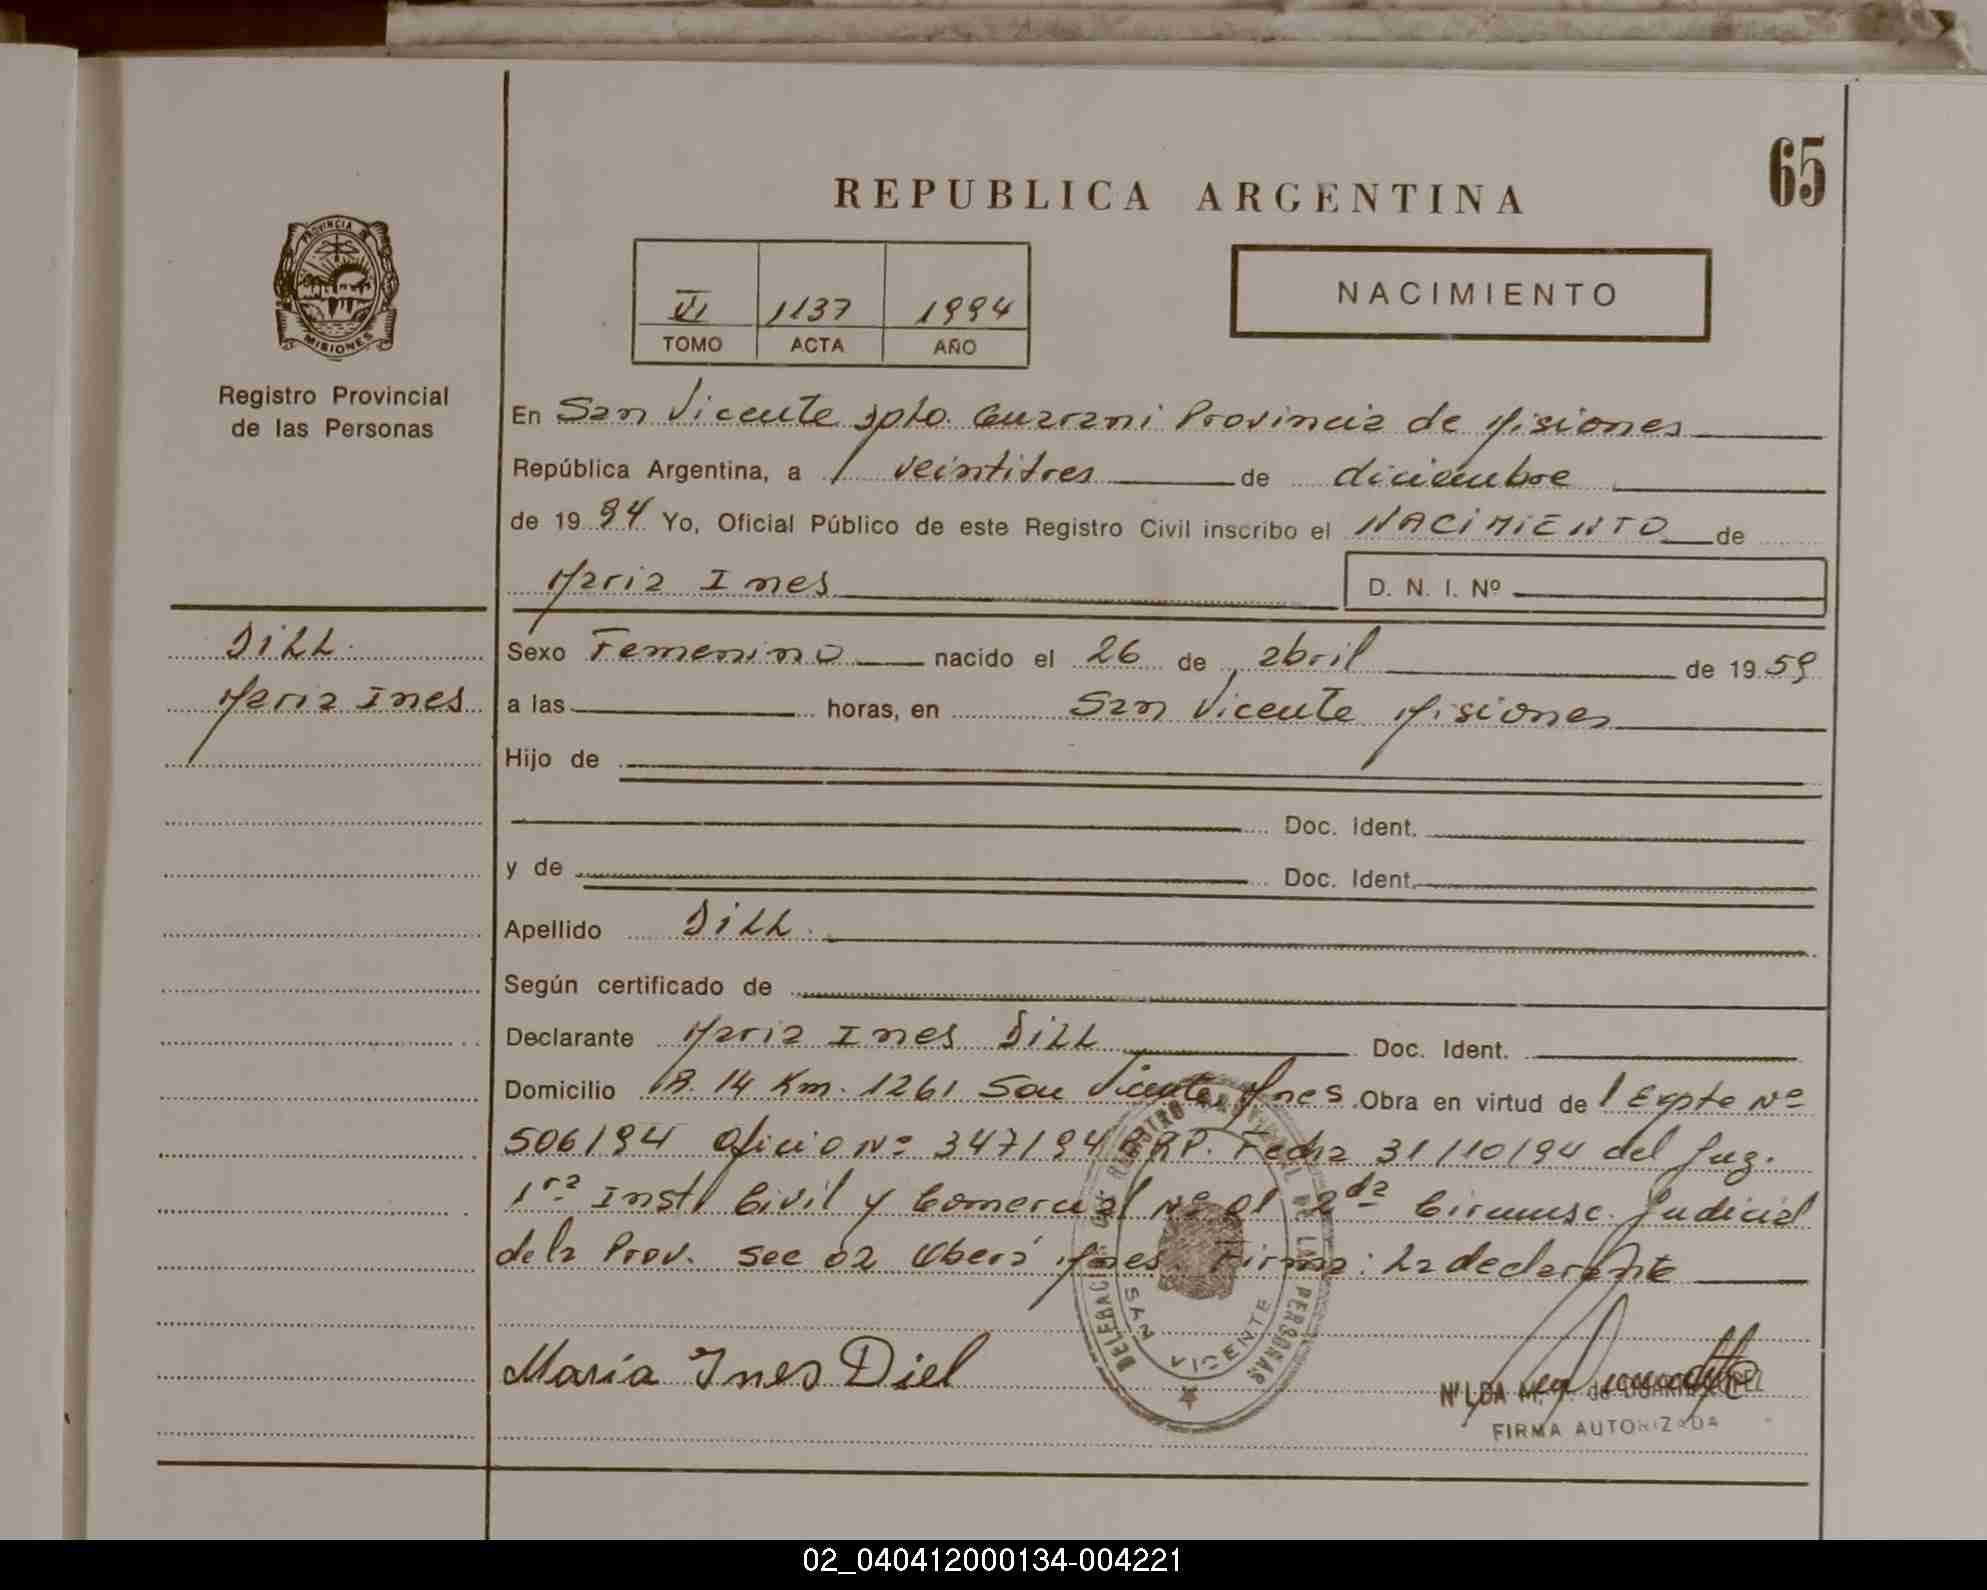 65
REPUBLICA ARGENTINA
PROVINCIA DE
MISIONES
Registro Provincial
de las Personas
VI 1137 1994
TOMO ACTA AÑO
NACIMIENTO
En San Vicente Dpto. Guarani Provincia de Misiones
República Argentina, a veintitres de diciembre
de 19 94 Yo, Oficial Público de este Registro Civil inscribo el NACIMIENTO de
Maria Ines D. N. I. Nº
DILL
Maria Ines
Sexo Femenino nacido el 26 de abril de 19 59
a las horas, en San Vicente Misiones
Hijo de
Doc. Ident.
y de Doc. Ident.
Apellido DILL.
Según certificado de
Declarante Maria Ines DILL Doc. Ident.
Domicilio R. 14 Km. 1261 San Vicente Mnes. Obra en virtud de Expte Nº
506/94 Oficio Nº 347/94 RRP. Fecha 31/10/94 del Juz.
1ra Inst. Civil y Comercial Nº 01 2da Circunsc. Judicial
de la Prov. Sec 02 Oberá Mnes. Firma: La declarante
María Ines Diel
DELEGACION REGISTRO PROVINCIAL DE LAS PERSONAS
SAN VICENTE
NILDA
FIRMA AUTORIZADA
02_040412000134-004221